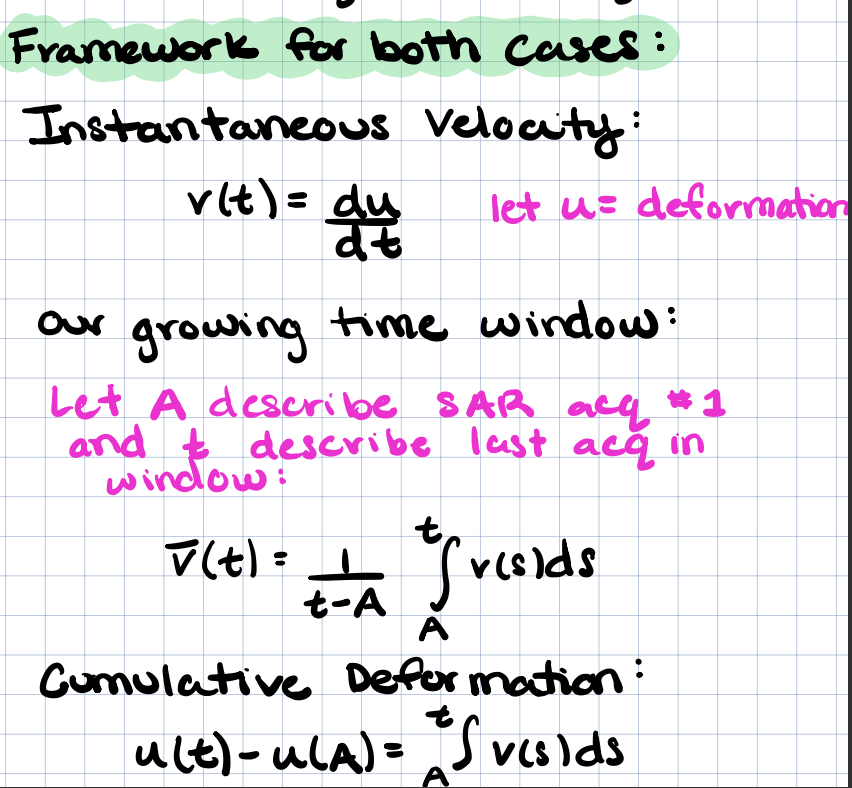 Framework for both cases:
Instantaneous Velocity:
v(t) = du/dt let u = deformation
our growing time window:
Let A describe SAR acq #1
and t describe last acq in
window:
v̅(t) = 1/(t-A) ∫_A^t v(s)ds
Cumulative Deformation:
u(t) - u(A) = ∫_A^t v(s)ds